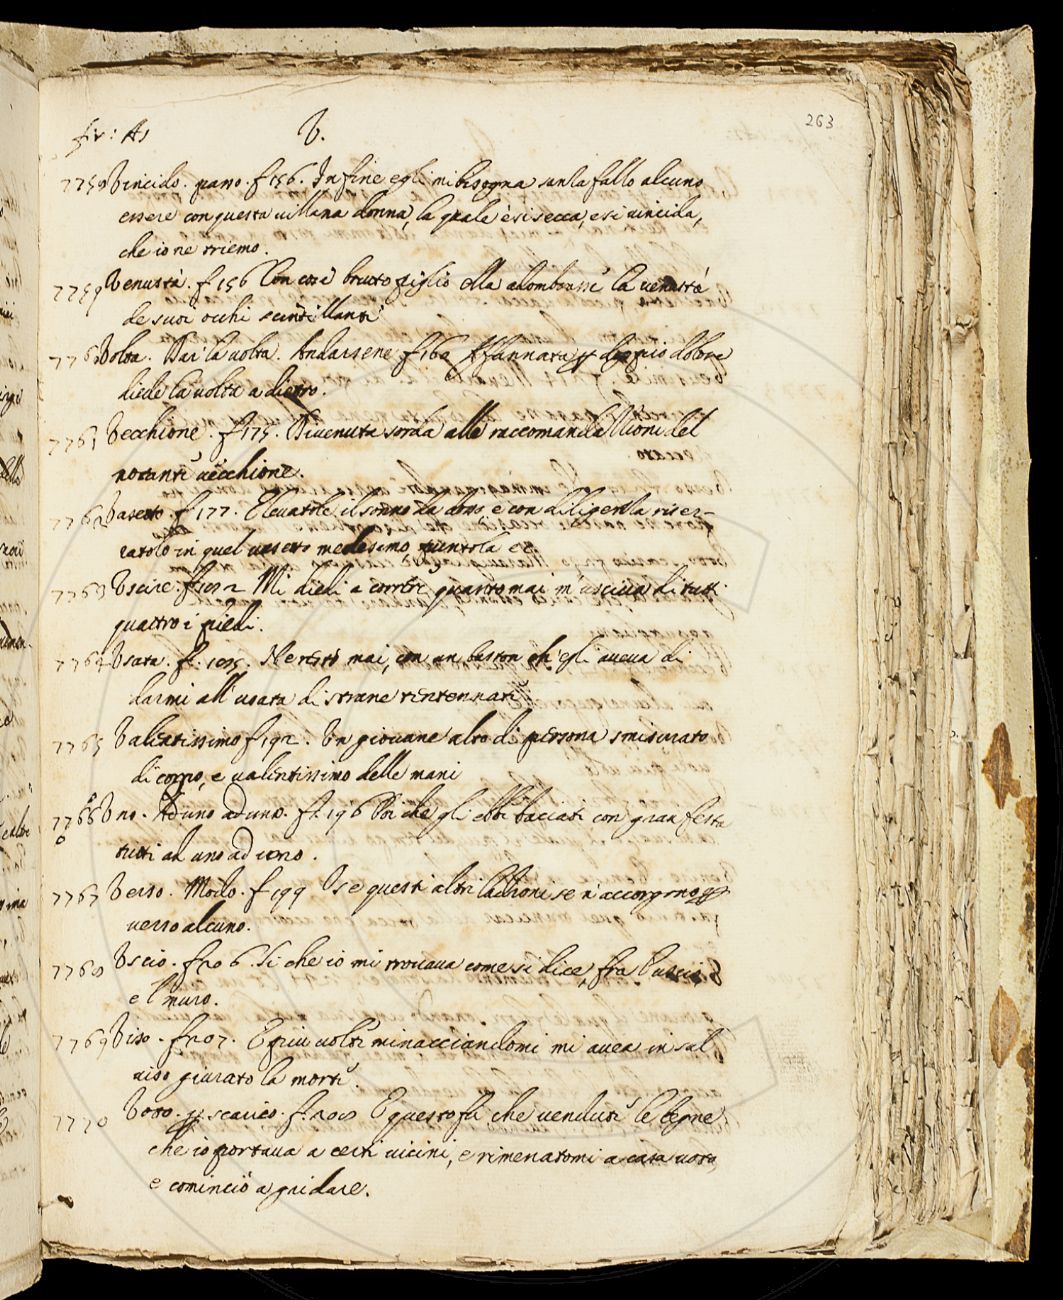 fir: As V. 263
7758 Vincido. parro. f 156. In fine egli mi bisogna sanza fallo alcuno
essere con questa villana donna, la quale è sì secca, e sì vincida,
che io ne triemo.
7759 Venustà. f 156 Con esse brutto la venustà
de suoi occhi scintillanti
7760 Volta. Dar la volta. Andarsene f 160 Affannata, e doppio dolore
diede la volta a dietro.
7761 Vecchione. f 175. Divenuta sorda alle raccomandazioni del
notanti vecchione.
7762 Vasetto. f 177. E levatole il sonno da dosso e con diligenza riser-
ratolo in quel vasetto medesimo, puntola
7763 Uscire. f 182 Mi diedi a correre quanto mai m'usciva di tutti
quattro i piedi.
7764 Usata. f. 185. Ne restò mai, con un baston ch'egli aveva di
darmi all'usata di strane tentennate
7765 Valentissimo f 192. Un giovane alto di persona smisurato
di corpo, e valentissimo delle mani
7766 Uno. Ad uno ad uno. f. 196 Poi che gli ebbe baciati con gran festa
tutti ad uno ad uno.
7767 Verso. Modo. f 199 Se questi altri ladroni se n'accorgono
verso alcuno.
7768 Uscio. f 206. Sì che io mi trovava come si dice, fra l'uscio
e 'l muro.
7769 Viso. f 207. E più volte minacciandomi mi avea in sul
viso giurato la morte.
7770 Voto. p scarico. f 208 E questo fu, che vendute le legne
che io portava a certi vicini, e rimenatomi a casa voto
e cominciò a gridare.